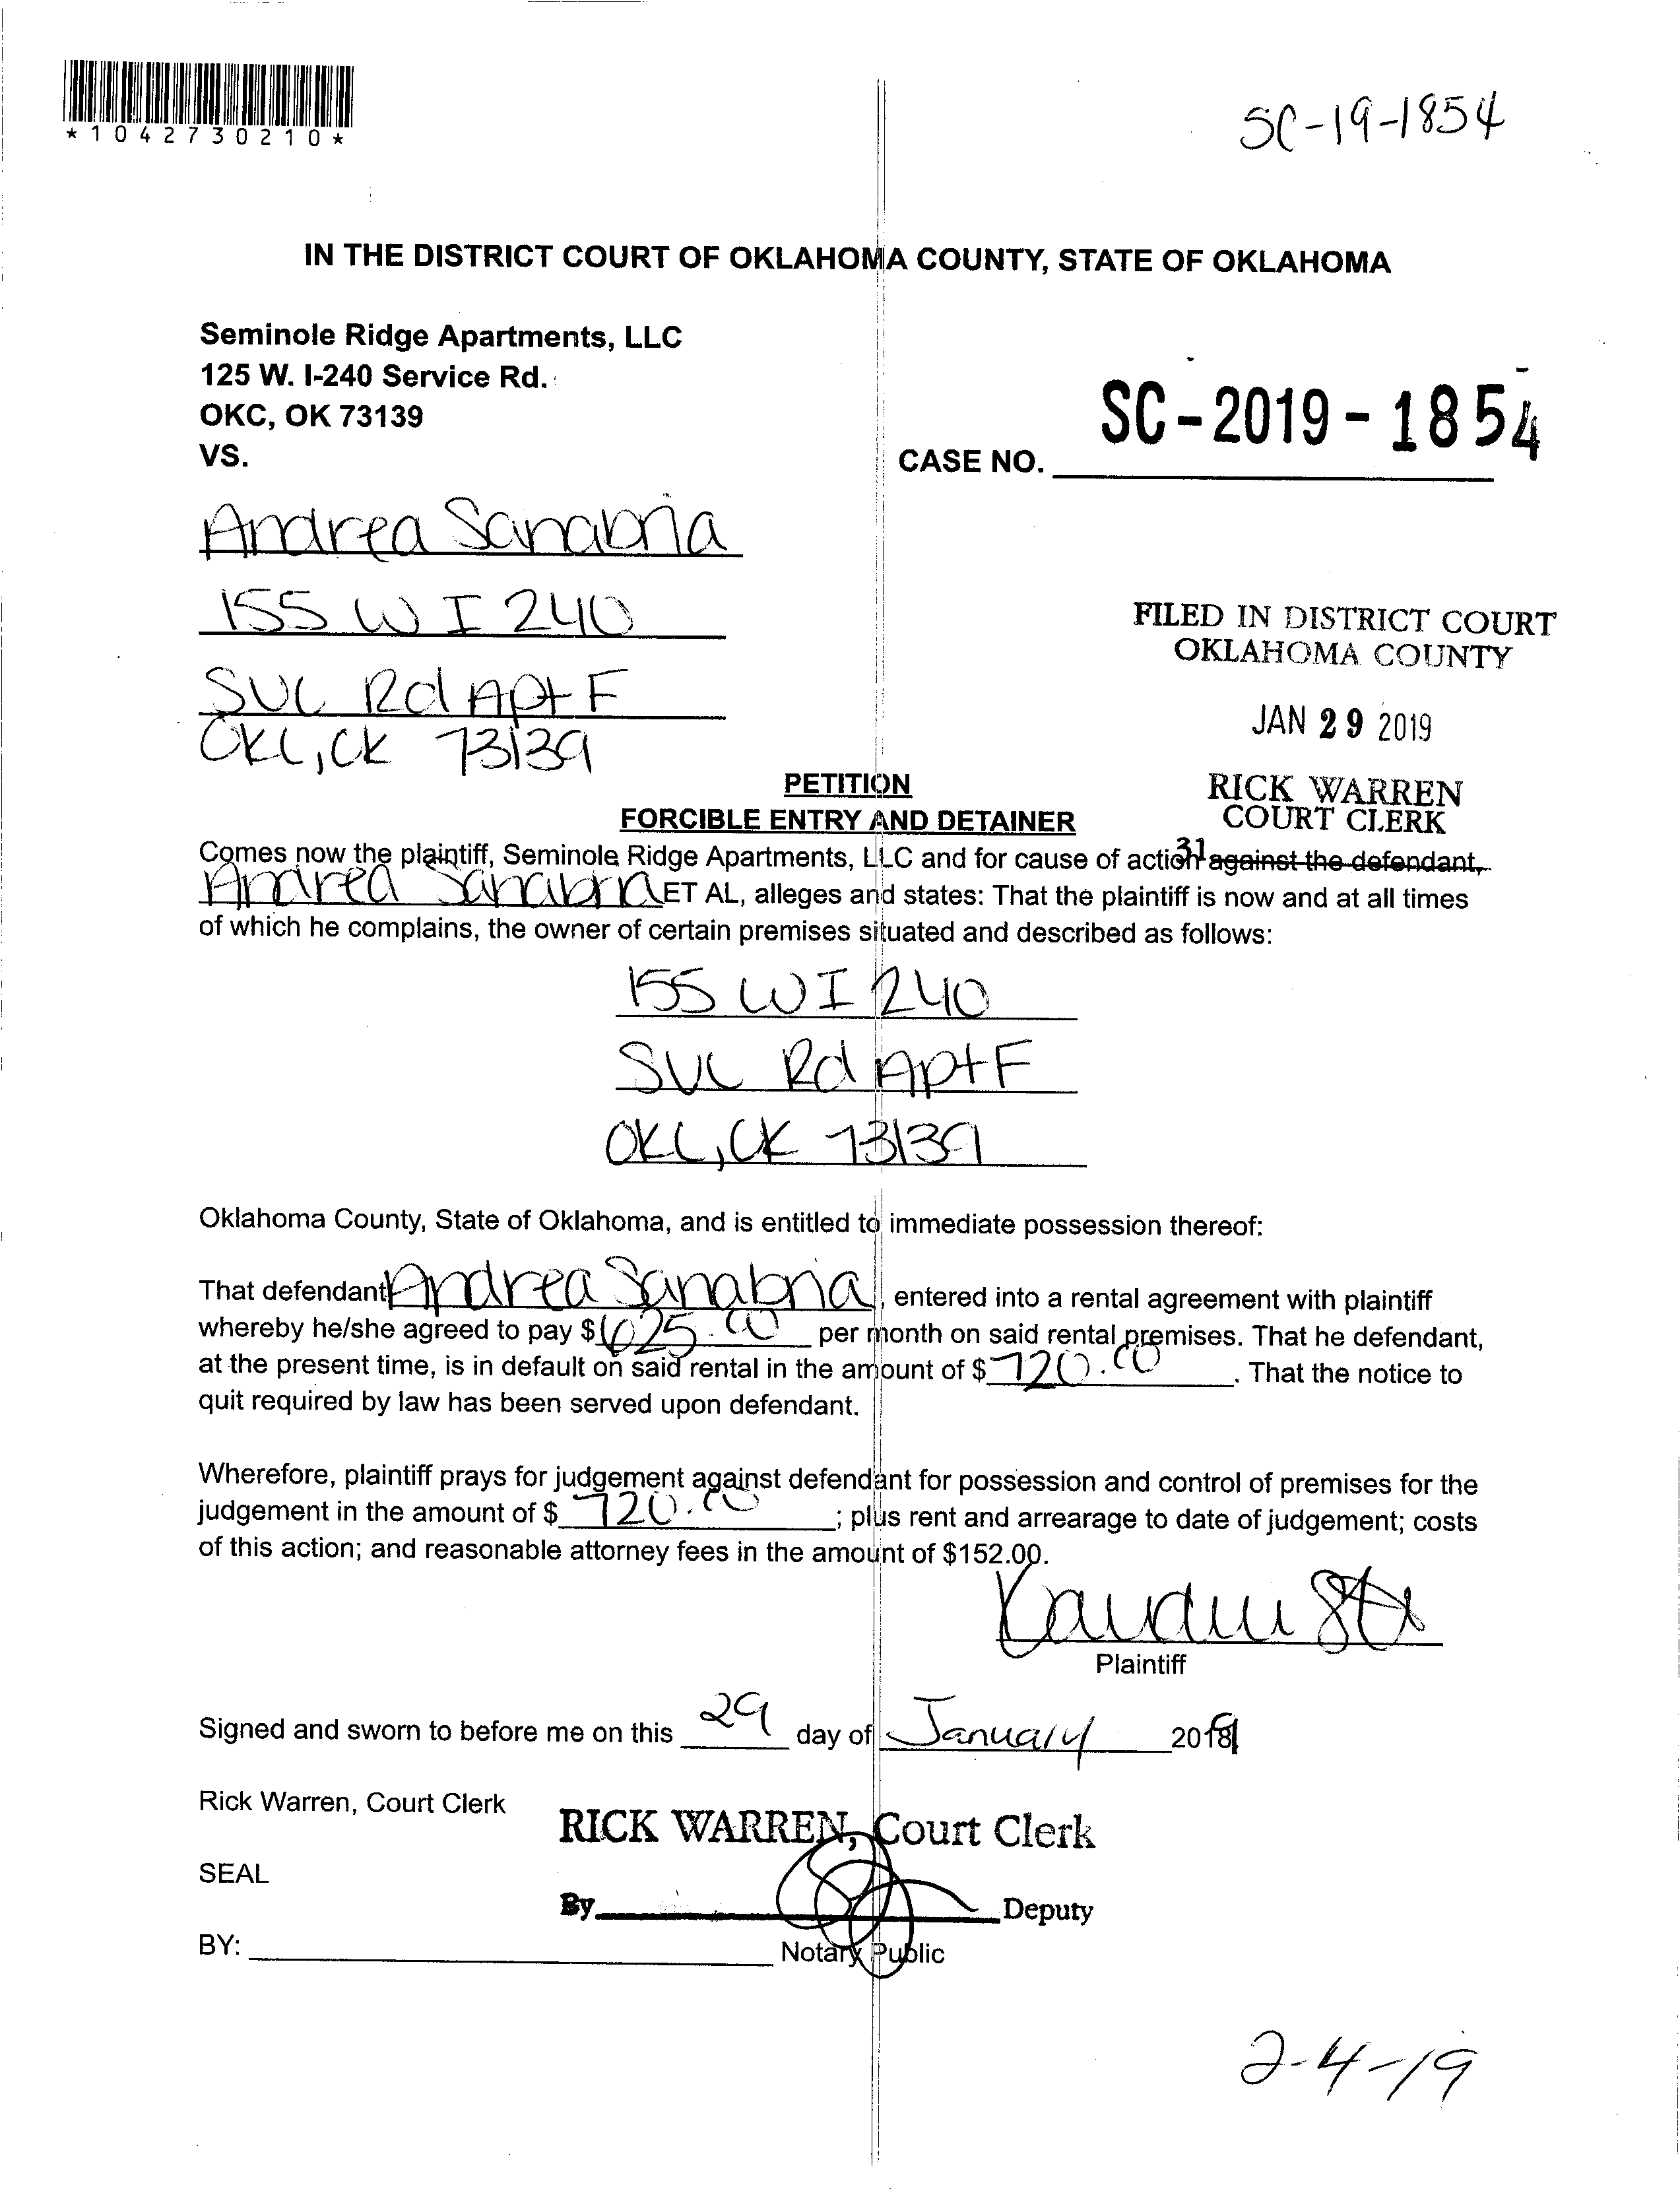 *1042730210*
SC-19-1854
IN THE DISTRICT COURT OF OKLAHOMA COUNTY, STATE OF OKLAHOMA
Seminole Ridge Apartments, LLC
125 W. I-240 Service Rd.
OKC, OK 73139
VS.
CASE NO. SC-2019-1854
Andrea Sanabria
155 W I 240
SVC Rd Apt F
OKC, OK 73139
FILED IN DISTRICT COURT
OKLAHOMA COUNTY
JAN 29 2019
RICK WARREN
COURT CLERK
31
PETITION
FORCIBLE ENTRY AND DETAINER
Comes now the plaintiff, Seminole Ridge Apartments, LLC and for cause of action against the defendant,
Andrea Sanabria ET AL, alleges and states: That the plaintiff is now and at all times
of which he complains, the owner of certain premises situated and described as follows:
155 W I 240
SVC Rd Apt F
OKC, OK 73139
Oklahoma County, State of Oklahoma, and is entitled to immediate possession thereof:
That defendant Andrea Sanabria, entered into a rental agreement with plaintiff
whereby he/she agreed to pay $625.00 per month on said rental premises. That he defendant,
at the present time, is in default on said rental in the amount of $720.00. That the notice to
quit required by law has been served upon defendant.
Wherefore, plaintiff prays for judgement against defendant for possession and control of premises for the
judgement in the amount of $720.00; plus rent and arrearage to date of judgement; costs
of this action; and reasonable attorney fees in the amount of $152.00.
Plaintiff
Signed and sworn to before me on this 29 day of January 2019
Rick Warren, Court Clerk
RICK WARREN, Court Clerk
SEAL
By Deputy
BY: Notary Public
2-4-19